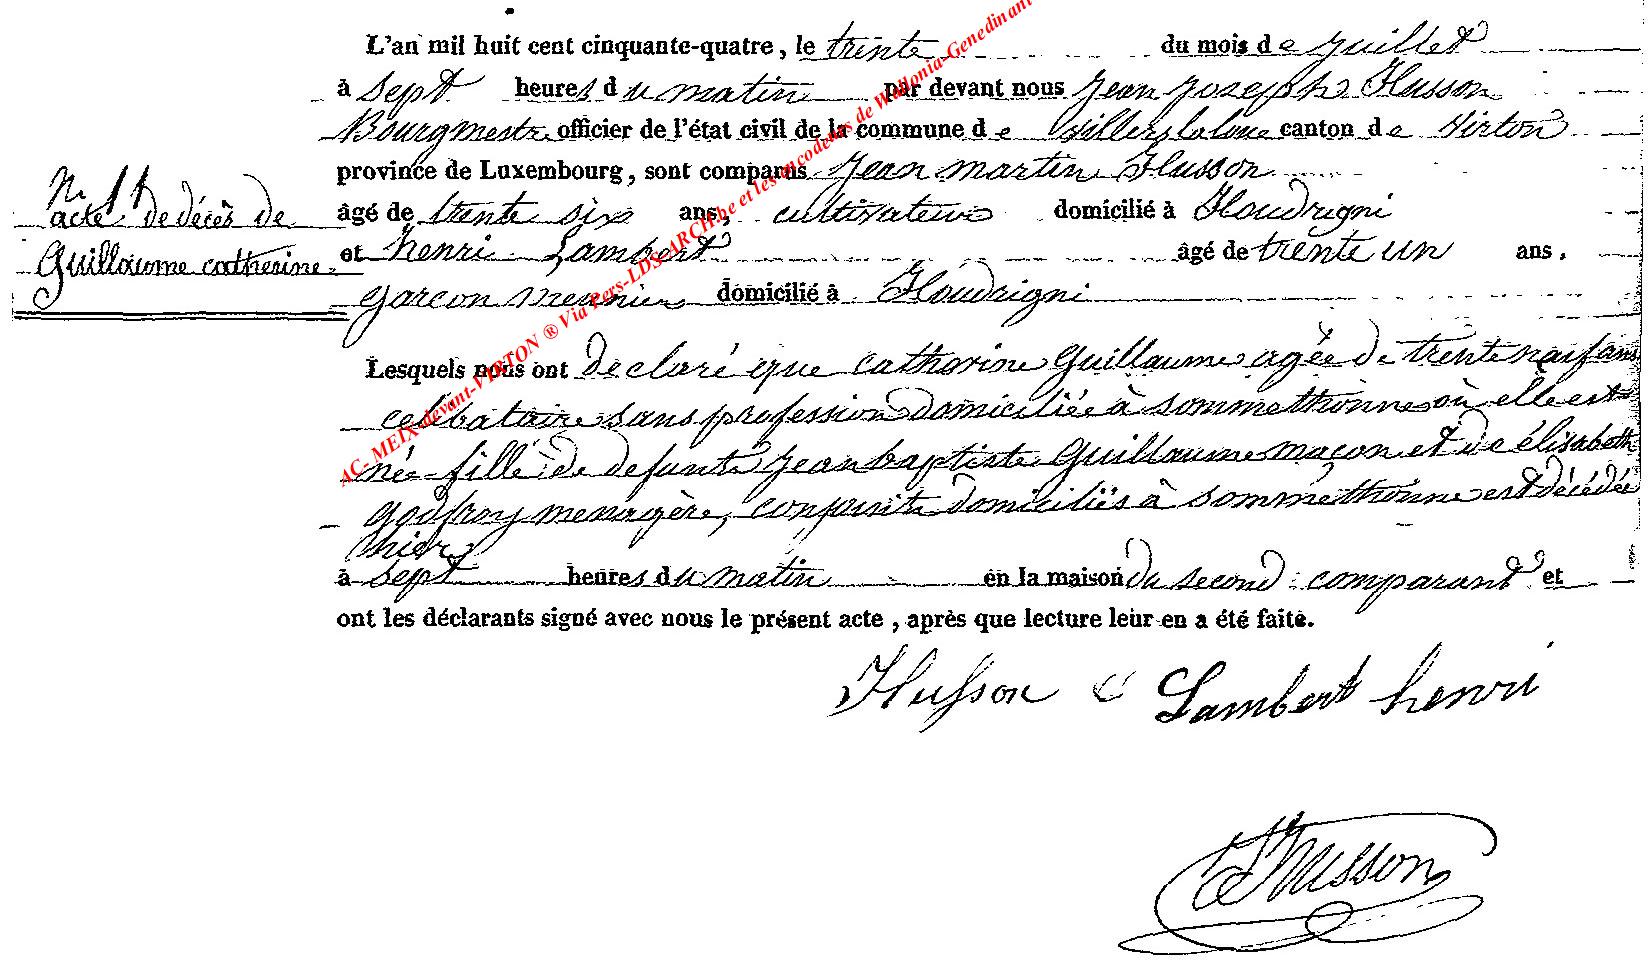 L'an mil huit cent cinquante-quatre, le trente du mois de juillet
à sept heures du matin par devant nous Jean Joseph Husson
Bourgmestre officier de l'état civil de la commune de Villers la loue canton de Virton
province de Luxembourg, sont comparus Jean martin Husson
âgé de trente six ans, cultivateur domicilié à Houdrigni
et henri Lambert âgé de trente un ans,
garcon meunier domicilié à Houdrigni
N. 11
acte de décès de
Guillaume catherine
Lesquels nous ont declaré que catherine Guillaume agée de trente neuf ans
celibataire sans profession domiciliée à sommethonne où elle est
née fille de defunt Jean baptiste Guillaume maçon et de élisabeth
Godfroy menagère, conjoints domiciliés à sommethonne est décédée
hier
à sept heures du matin en la maison du second comparant et
ont les déclarants signé avec nous le présent acte, après que lecture leur en a été faite.
Husson Lambert henri
Husson
AC- MEIX-devant-VIRTON ® Via Pers-LDS-ARCH.be et les encodeurs de Wallonia-Genedinant